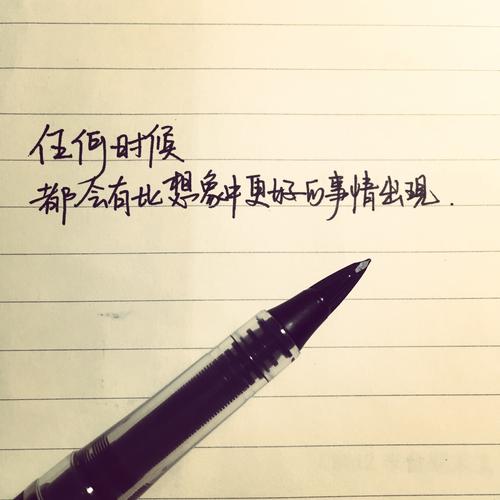 任何时候
都会有比想象中更好的事情出现.